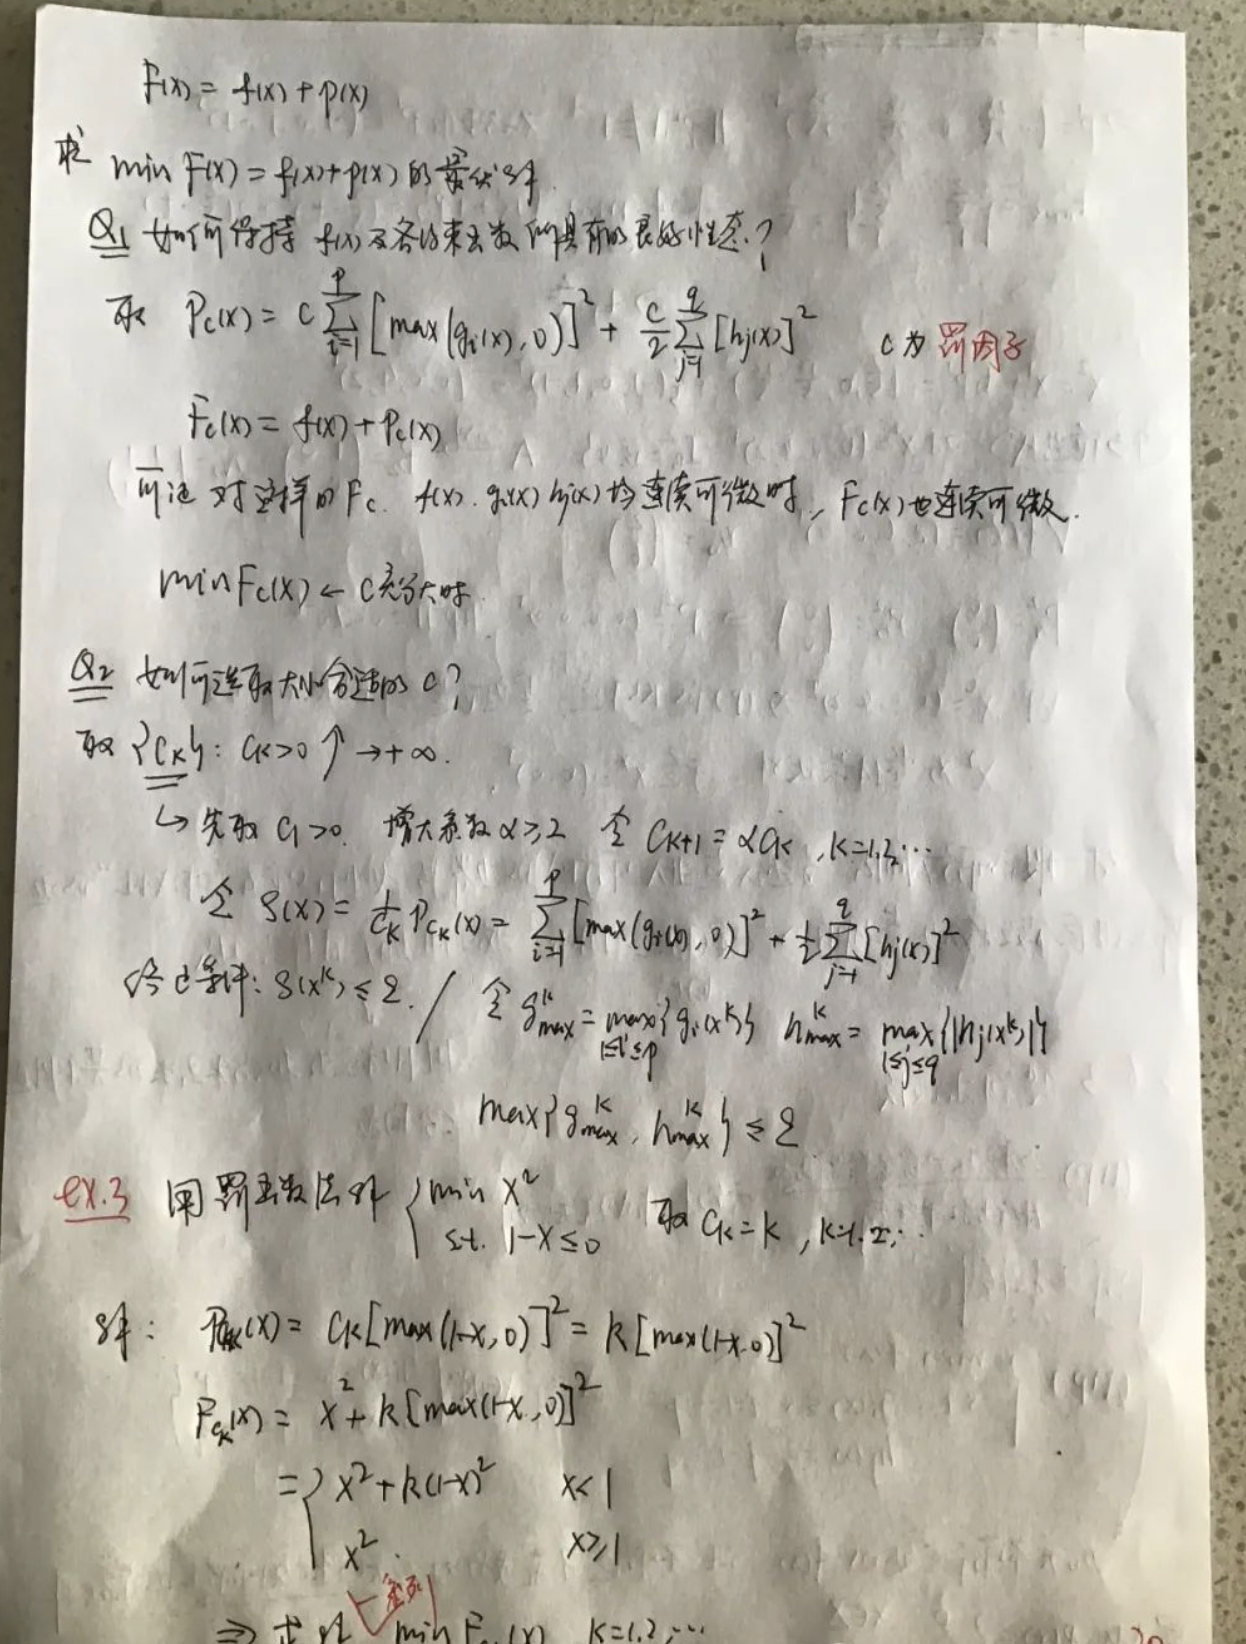 F(x) = f(x) + p(x)
求 min F(x) = f(x) + p(x) 的最优解
Q1 如何保持 f(x) 及各约束函数所具有的良好性态?
取 Pc(x) = c ∑_{i=1}^{p} [max(gi(x), 0)]² + c/2 ∑_{j=1}^{q} [hj(x)]² c为罚因子
Fc(x) = f(x) + Pc(x)
可证 对这样的 Fc. f(x). gi(x) hj(x) 均连续可微时, Fc(x) 也连续可微.
min Fc(x) ← c充分大时
Q2 如何选取大小合适的 c?
取 {Ck}: Ck>0 ↑ → +∞.
↳ 先取 C1>0. 增大系数 α≥2 令 Ck+1 = αCk , k=1,2,…
令 S(x) = 1/Ck PCk(x) = ∑_{i=1}^{p} [max(gi(x), 0)]² + 1/2 ∑_{j=1}^{q} [hj(x)]²
终止条件: S(x^k) ≤ ε. / 令 g^k_max = max_{1≤i≤p} {gi(x^k)} h^k_max = max_{1≤j≤q} {|hj(x^k)|}
max{g^k_max, h^k_max} ≤ ε
ex.3 用罚函数法解 { min x² 取 Ck = k , k=1.2,…
s.t. 1-x ≤ 0
解: PCk(x) = Ck[max(1-x, 0)]² = k[max(1-x, 0)]²
FCk(x) = x² + k[max(1-x, 0)]²
= { x² + k(1-x)² x<1
x². x≥1
⇒ 求解 min F (x) k=1.2,…